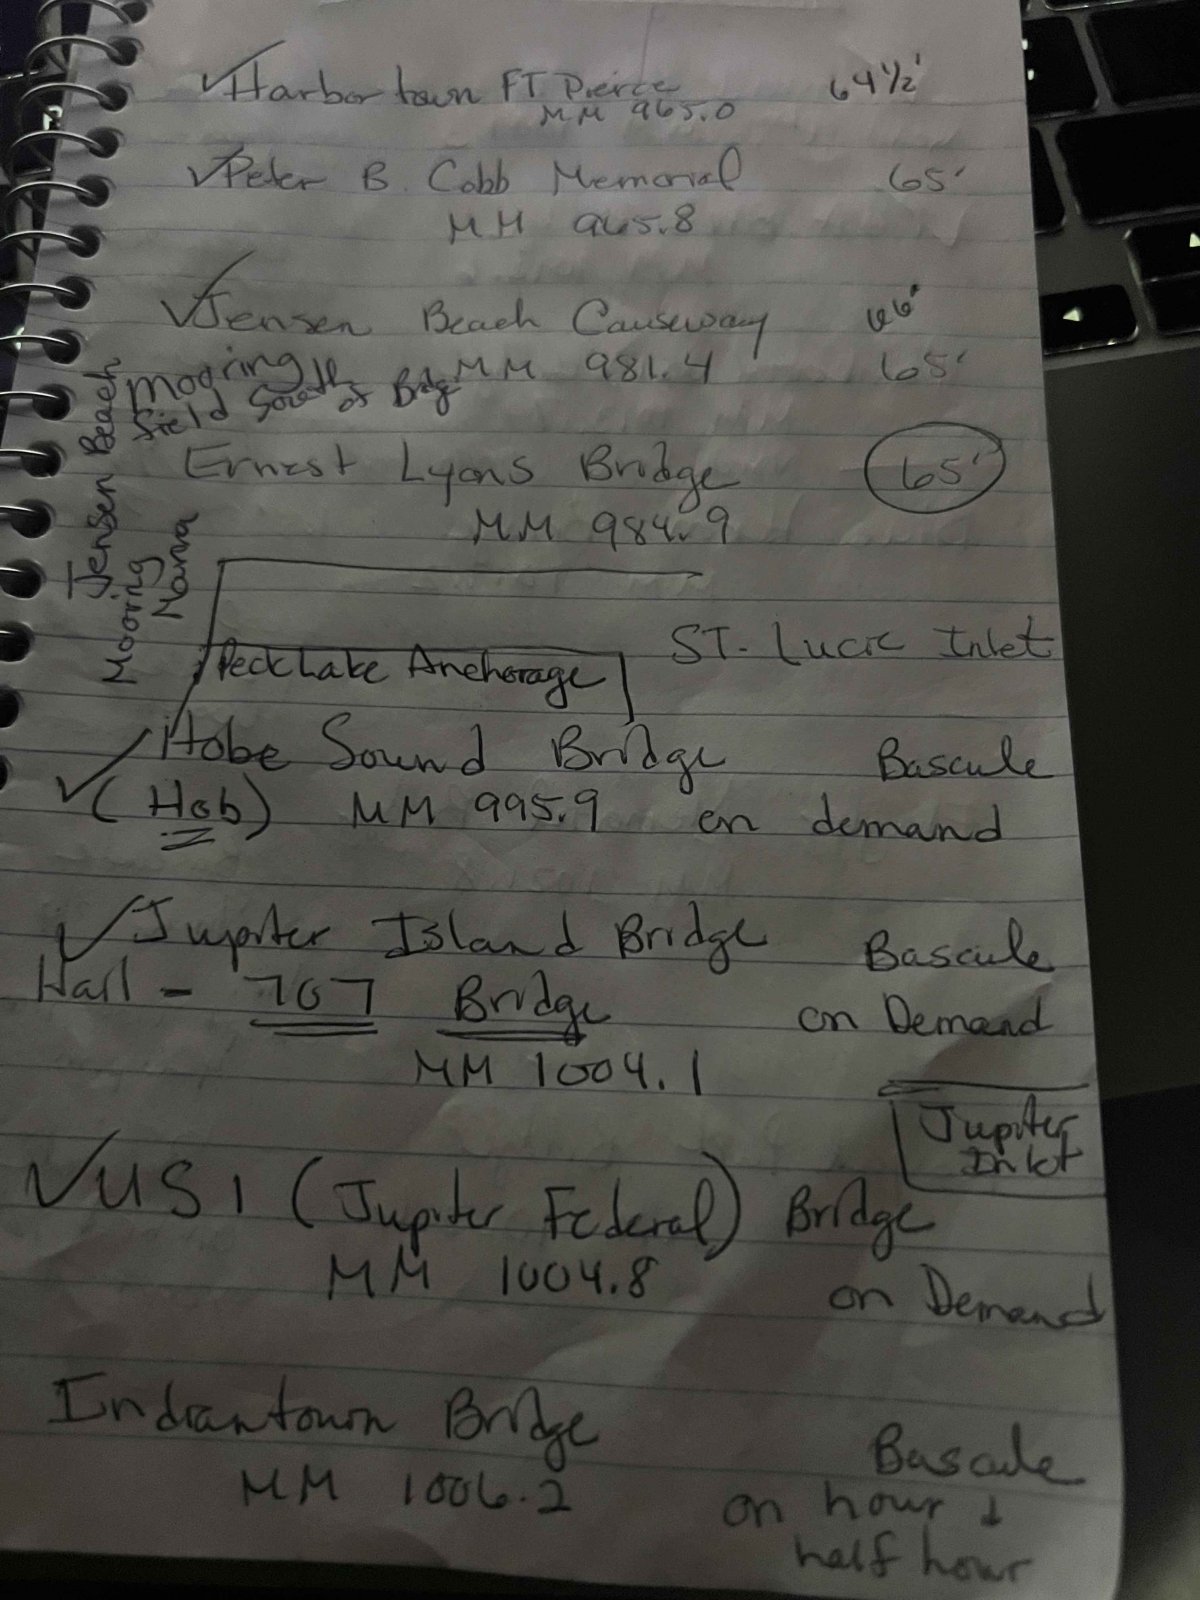 ✓Harbortown FT. Pierce 64 1/2'
MM 965.0
✓Peter B. Cobb Memorial 65'
MM 965.8
✓Jensen Beach Causeway 66'
MM 981.4 65'
mooring
field South of Bridge
Ernest Lyons Bridge 65'
MM 984.9
Jensen Beach
Mooring
ST. Lucie Inlet
Peck Lake Anchorage
✓Hobe Sound Bridge Bascule
(Hob) MM 995.9 on demand
✓Jupiter Island Bridge Bascule
Hail - 707 Bridge on Demand
MM 1004.1
Jupiter
Inlet
✓US 1 (Jupiter Federal) Bridge
MM 1004.8 on Demand
Indiantown Bridge Bascule
MM 1006.2 on hour +
half hour